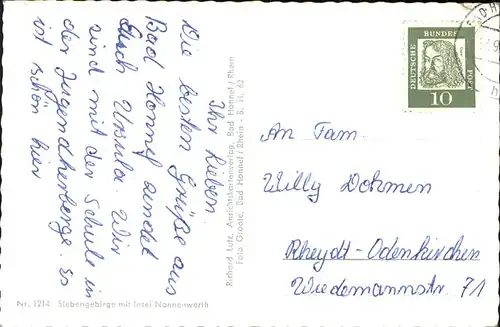 Ihr Lieben.
Die besten Grüße aus
Bad Honnef sendet
Euch Ursula. Wir
sind mit der Schule in
der Jugendherberge. Es
ist schön hier
Richard Lutz, Ansichtskartenverlag, Bad Honnef/Rhein
Foto Groote, Bad Honnef/Rhein - B. N. 62
Nr. 1214 Siebengebirge mit Insel Nonnenwerth
DEUTSCHE BUNDESPOST
10
BAD H
An Fam.
Willy Dohmen
Rheydt-Odenkirchen
Wiedemannstr. 71